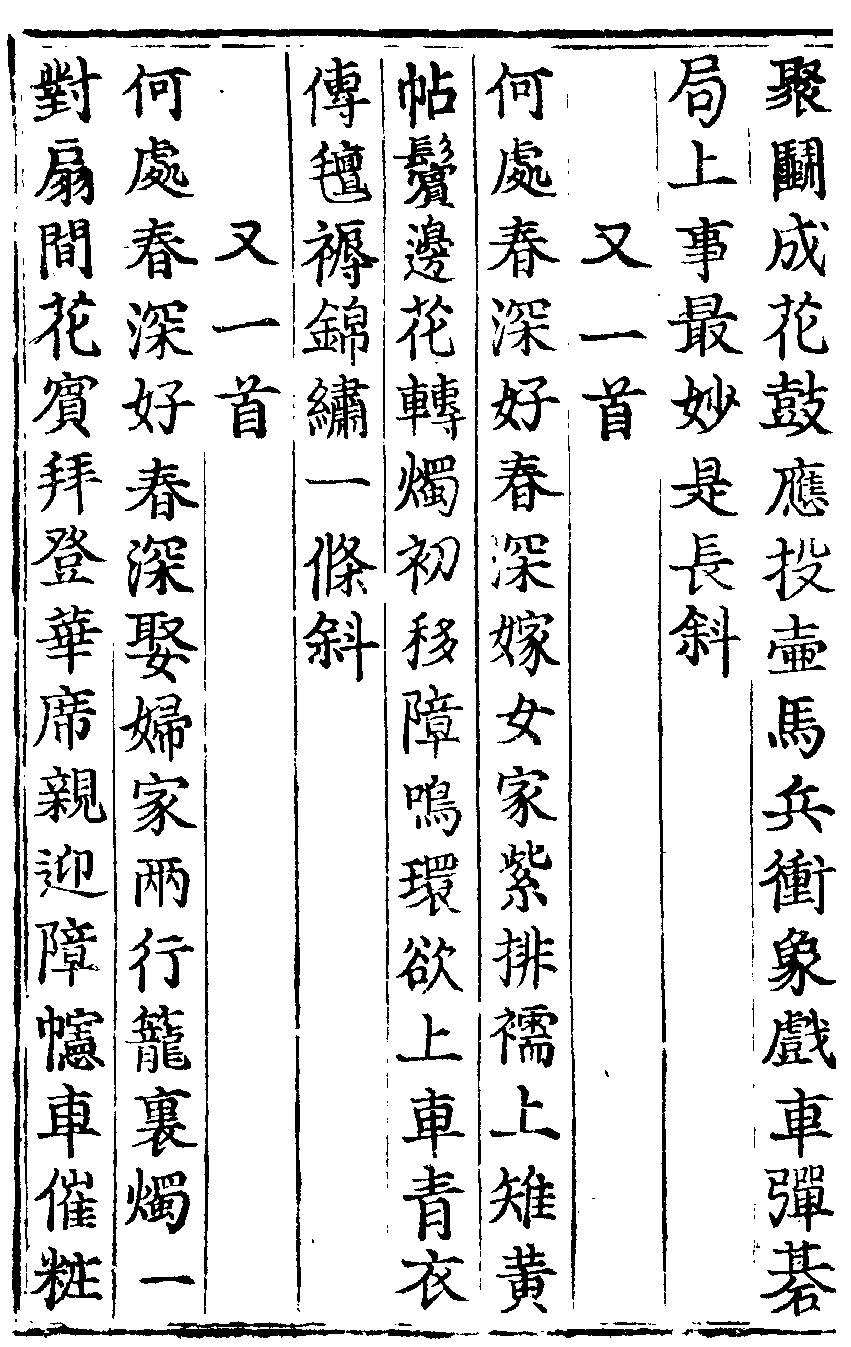 聚鬬成花鼓應投壺馬兵衝象戲車彈碁
局上事最妙是長斜
又一首
何處春深好春深嫁女家紫排襦上雉黄
帖鬢邊花轉燭初移障鳴環欲上車青衣
傳氊褥錦繡一條斜
又一首
何處春深好春深娶婦家兩行籠裏燭一
對扇間花賓拜登華席親迎障幰車催粧